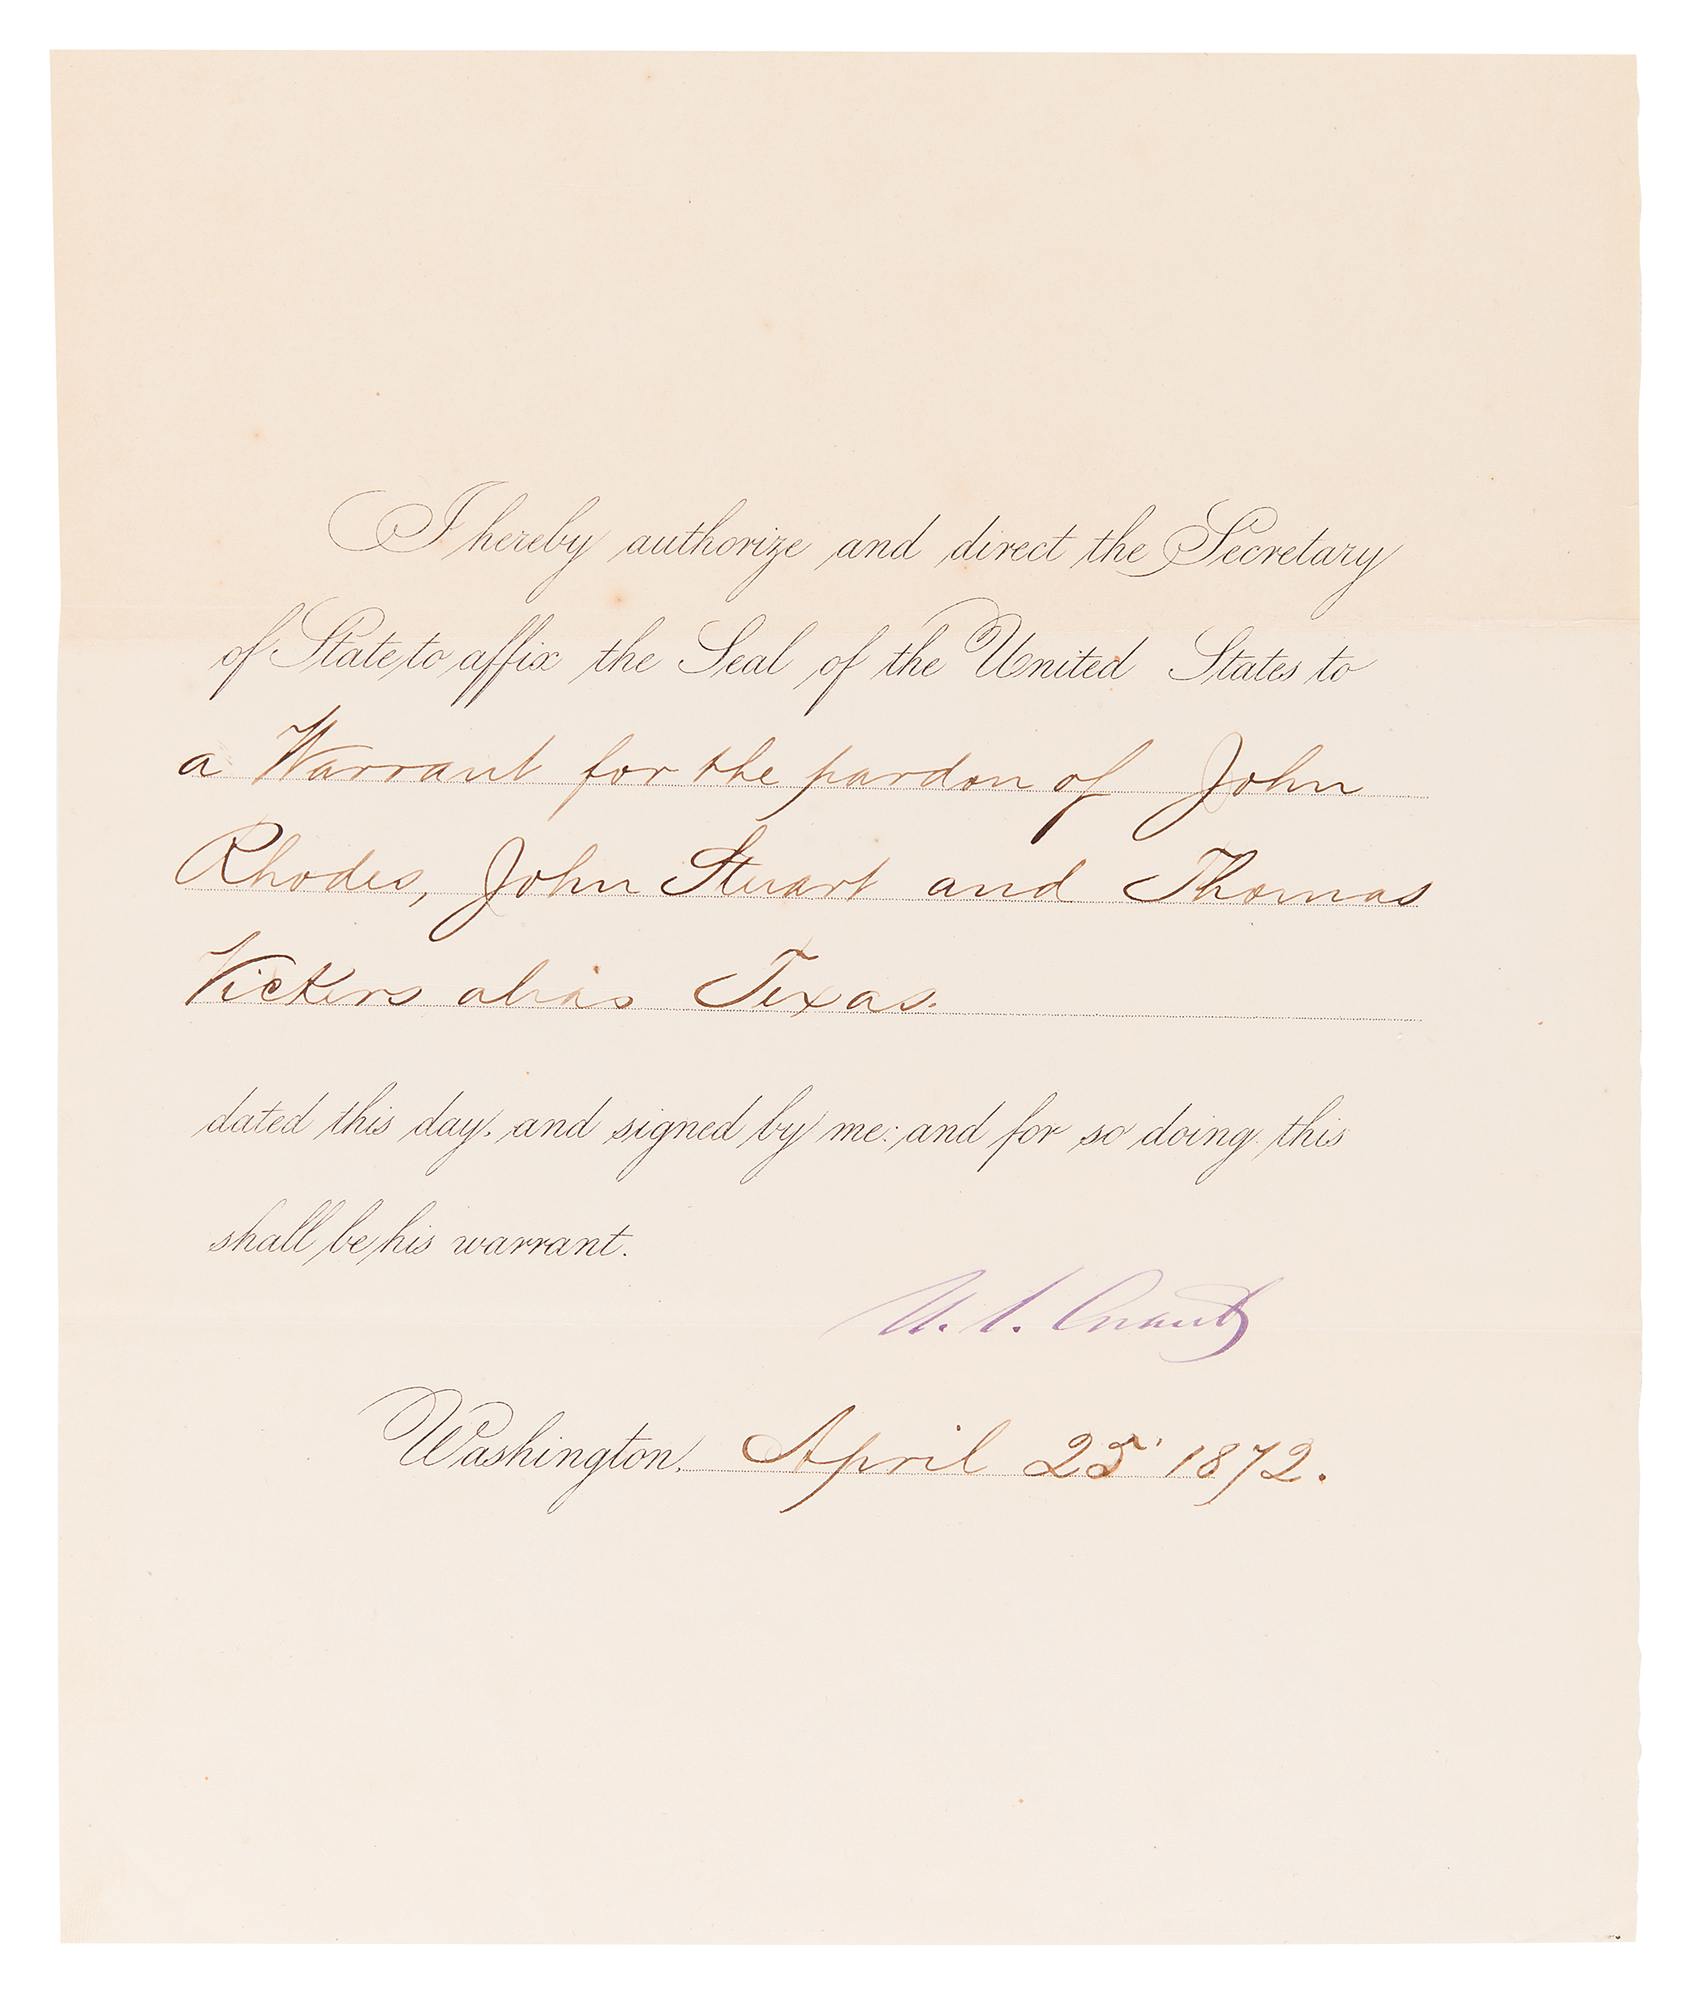 I hereby authorize and direct the Secretary
of State to affix the Seal of the United States to
a Warrant for the pardon of John
Rhodes, John Stuart and Thomas
Vickers alias Texas.
dated this day, and signed by me: and for so doing this
shall be his warrant.
U. S. Grant
Washington, April 25' 1872.